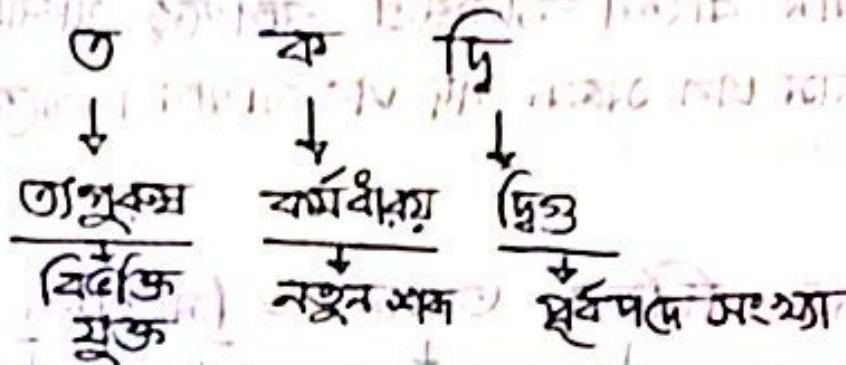 ত ক দ্বি
তৎপুরুষ কর্মধারয় দ্বিগু
বিভক্তি নতুন শব্দ পূর্বপদে সংখ্যা
যুক্ত